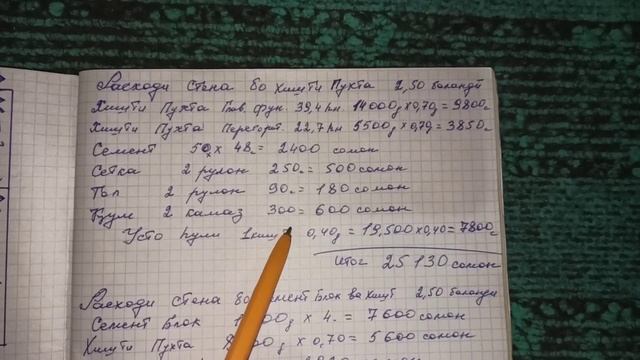 Расходи Стена бо хишти Пухта 2,50 баланди
Хишти Пухта Глав. фун. 39,4 пм. 14000g x 0,7g = 9800с
Хишти Пухта Перегорт. 22,7 пм 5500g x 0,7g = 3850с
Семент 50 x 48с = 2400 сомон
Сетка 2 рулон 250с = 500 сомон
Тол 2 рулон 90с = 180 сомон
Қум 2 камаз 300 = 600 сомон
Усто пули 1 хишт 0,40g = 19,500 x 0,40 = 7800с
Итог 25130 сомон
Расходи Стена бо Семент блок ва хишт 2,50 баланди
Семент Блок x 4с = 7600 сомон
Хишти Пухта x 0,70 = 5600 сомон